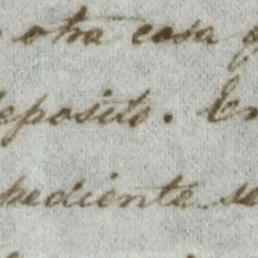 otra cosa
deposito. En
pediente se